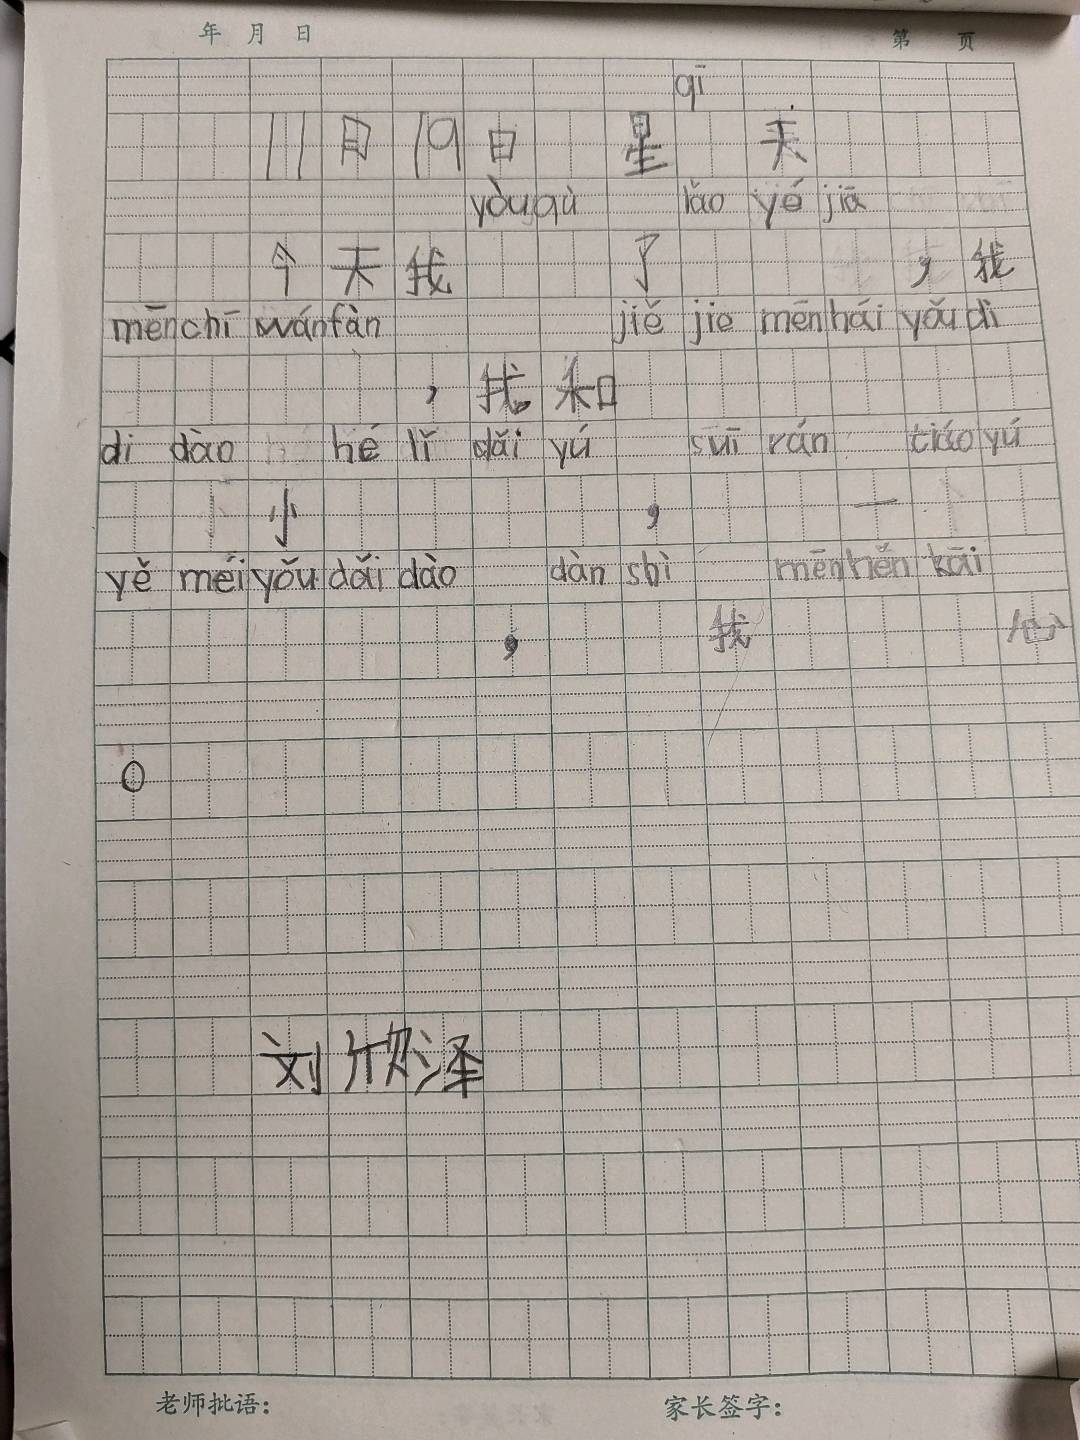 年 月 日 第 页
qī
11月19日 星 天
yòu qù lǎo yé jiā
今天我 了 ,我
mēn chī wán fàn jiě jie mēn hái yǒu dì
,我和
di dào hé lǐ dǎi yú suī rán tiáo yú
小 , 一
yě méi yǒu dǎi dào dàn shì mēn hěn kāi
, 我 心
。
刘欣泽
老师批语: 家长签字: